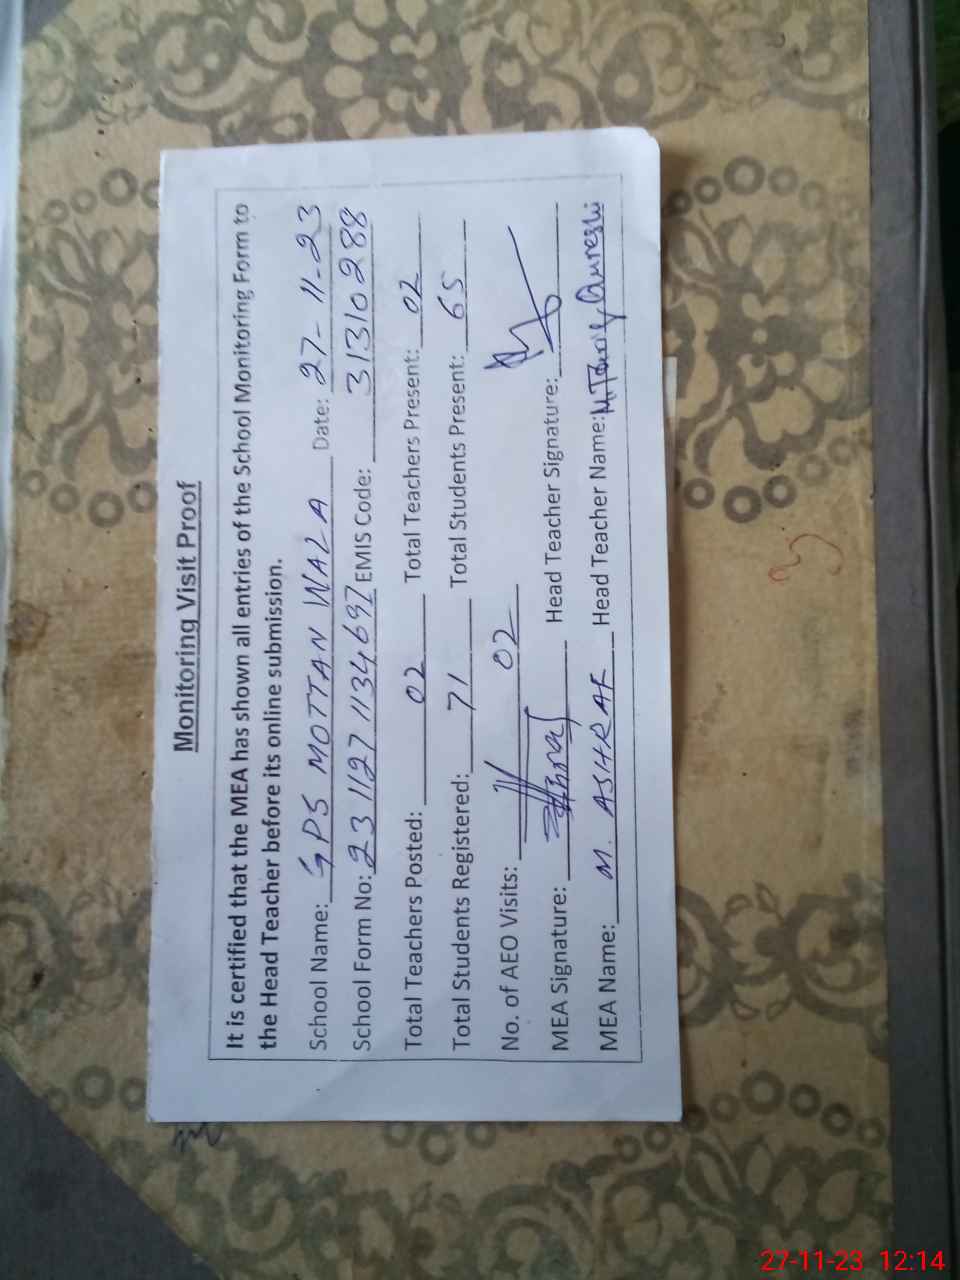 Monitoring Visit Proof
It is certified that the MEA has shown all entries of the School Monitoring Form to
the Head Teacher before its online submission.
School Name: GPS MOTTAN WALA Date: 27-11-23
School Form No: 23 1127 1134697 EMIS Code: 31310288
Total Teachers Posted: 02 Total Teachers Present: 02
Total Students Registered: 71 Total Students Present: 65
No. of AEO Visits: 02
MEA Signature: Head Teacher Signature:
MEA Name: M. ASHRAF Head Teacher Name: M. Qureshi
27-11-23 12:14